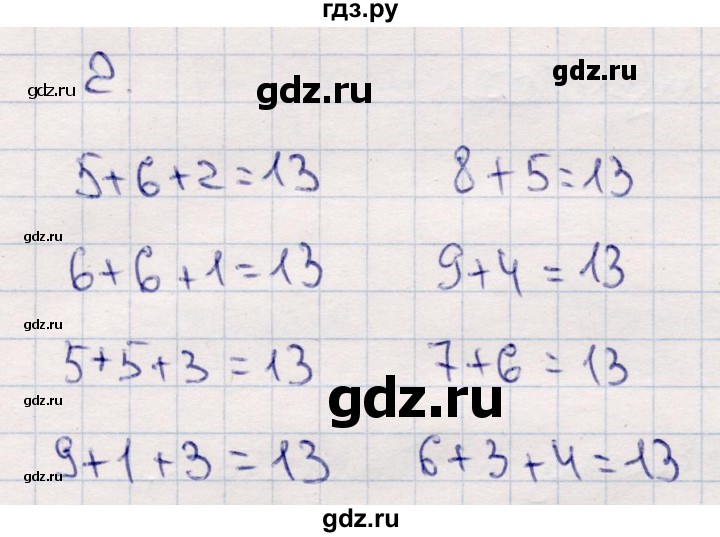 гдз.ру
2.
gdz.ru gdz.ru gdz.ru
5+6+2=13 8+5=13
gdz.ru
6+6+1=13 9+4=13
gdz.ru
5+5+3=13 7+6=13
gdz.ru gdz.ru
9+1+3=13 6+3+4=13
gdz.ru
gdz.ru